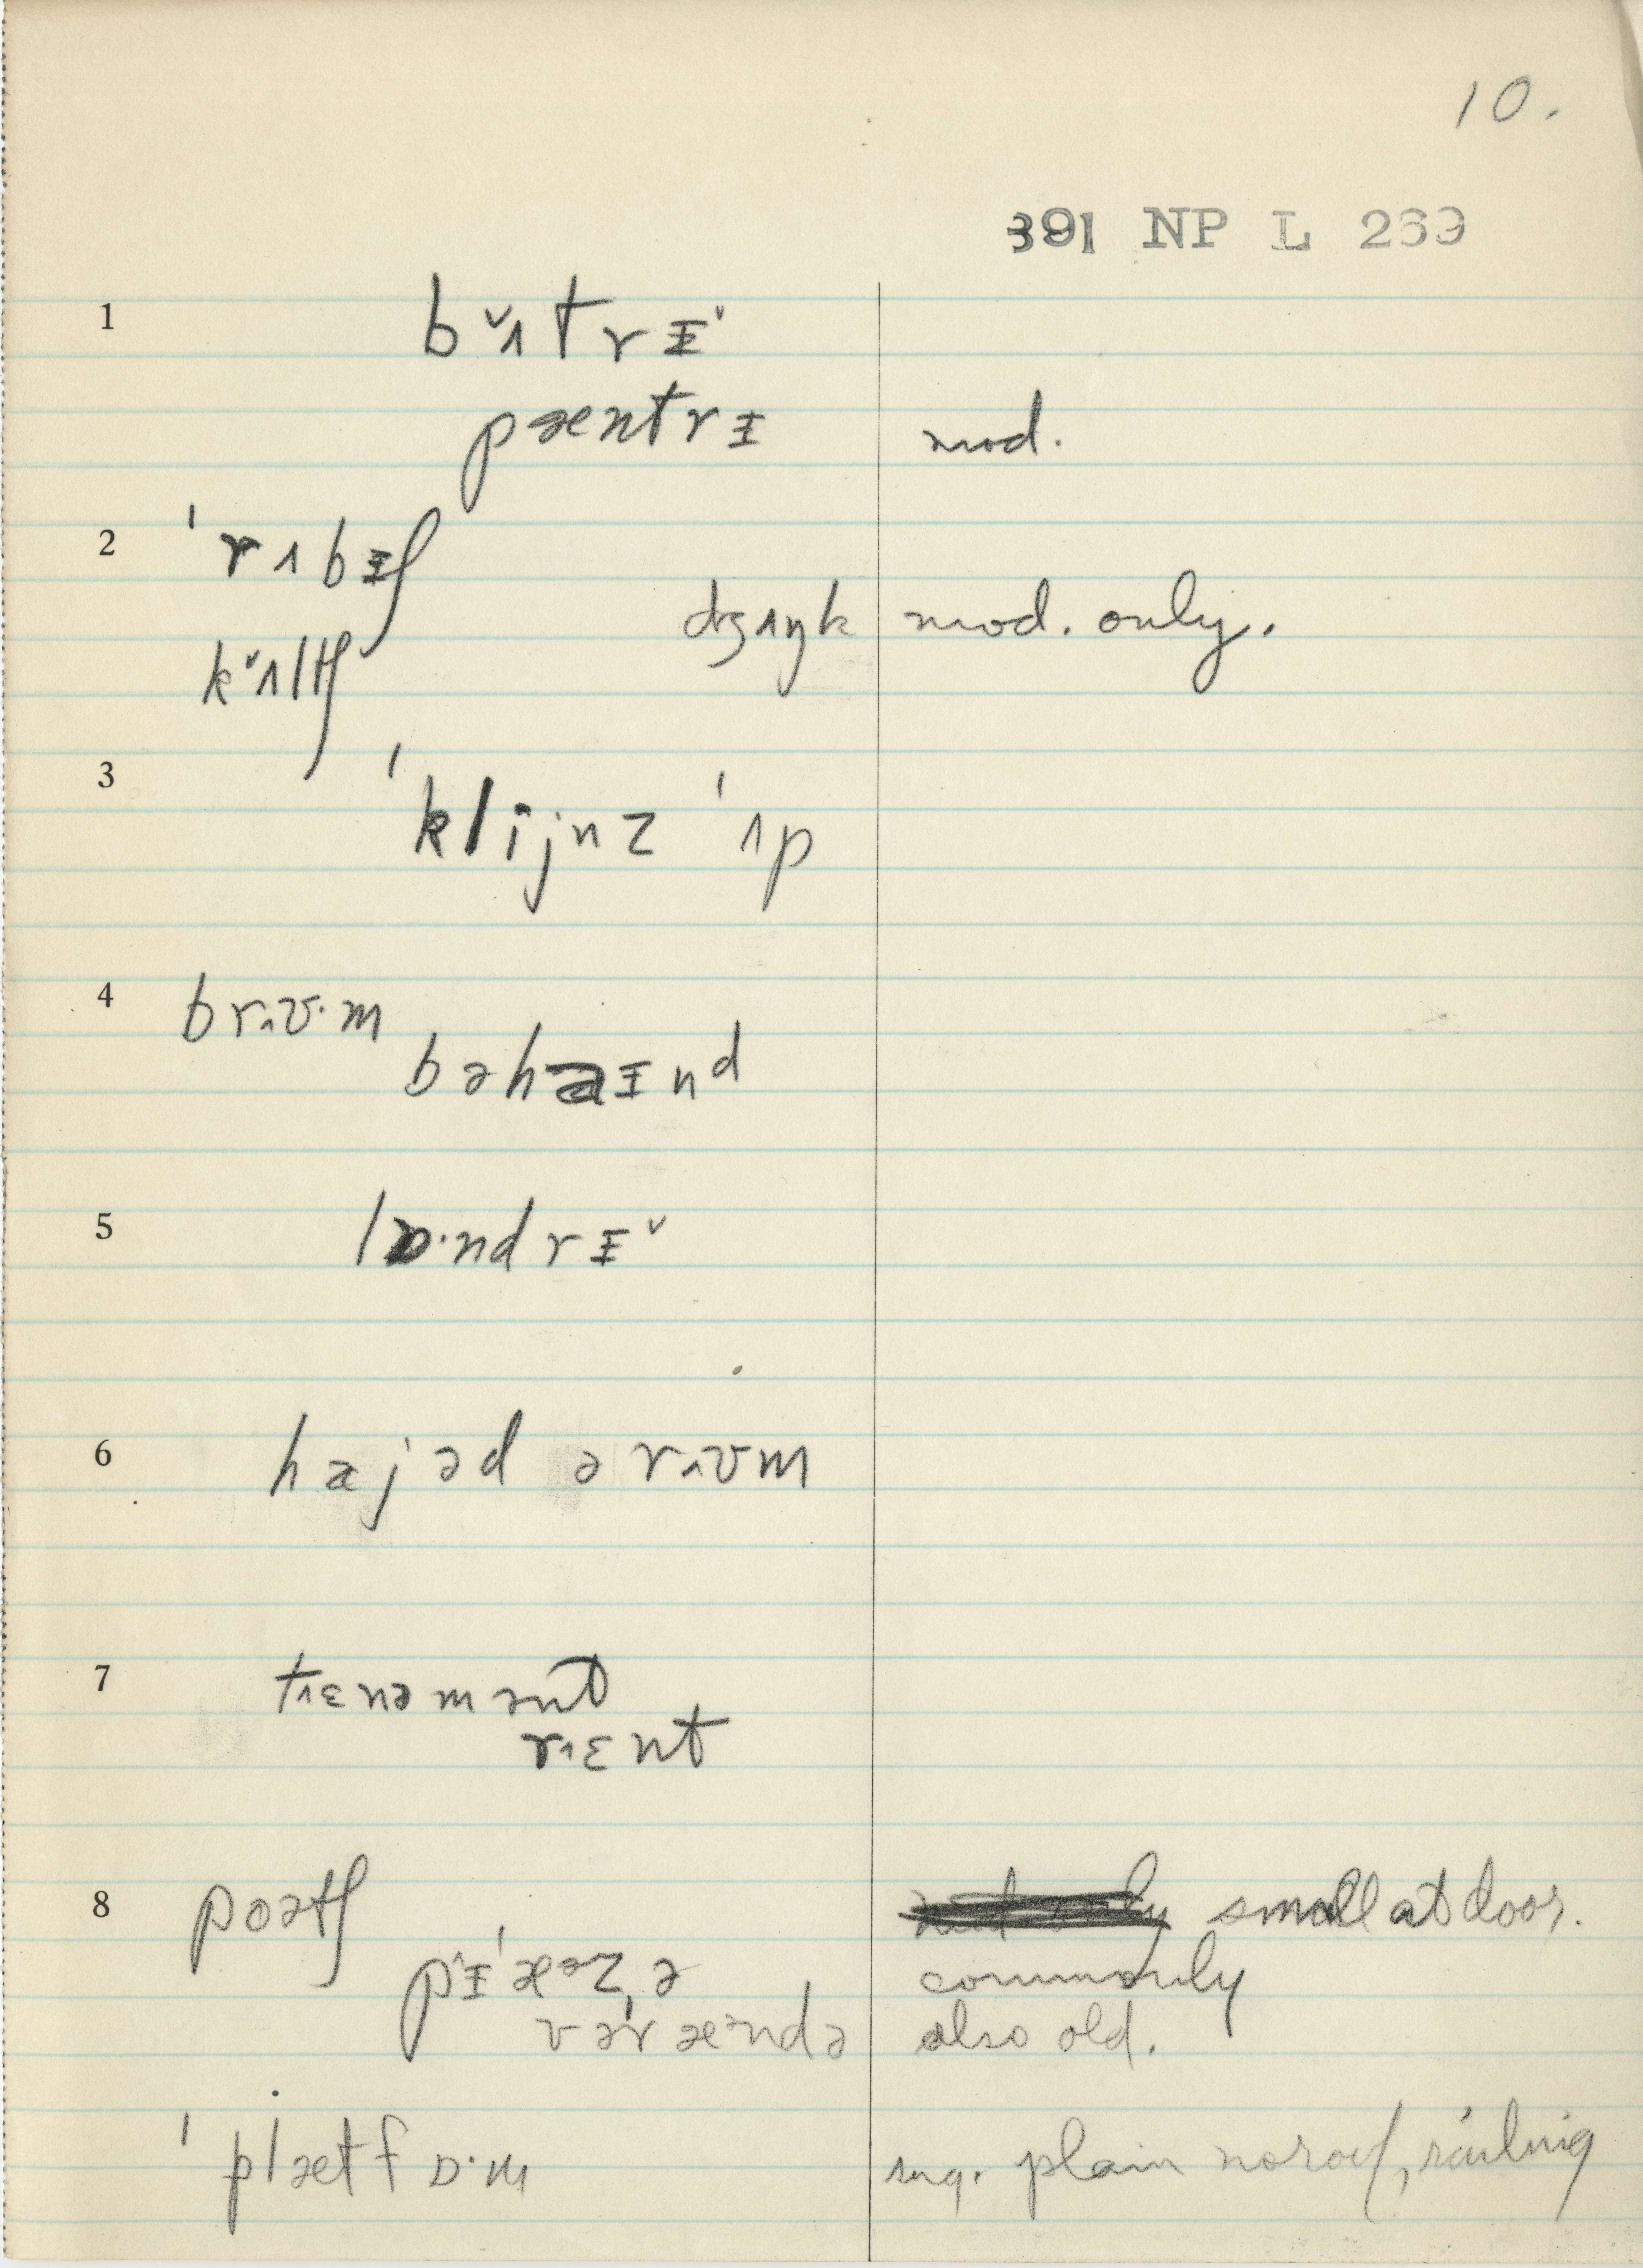 10.
391 NP L 269
1 bᵛɪtrɪᵛ
pæntrɪ mod.
2 ˈrʌbɪʃ
dʒʌŋk mod. only.
kᵛʌltʃ
3 ˈklijnz ˈʌp
4 brʌʊ·m
bəhaɪnd
5 lɒ·ndrɪᵛ
6 hæjəd ə rʌʊm
7 tɪɛnəmənt
rɪɛnt
8 poətʃ small at door.
pɪˈæᵊzə commonly
vəˈræᵊndə also old.
ˈplætfɒ·m sug. plain no roof, railing